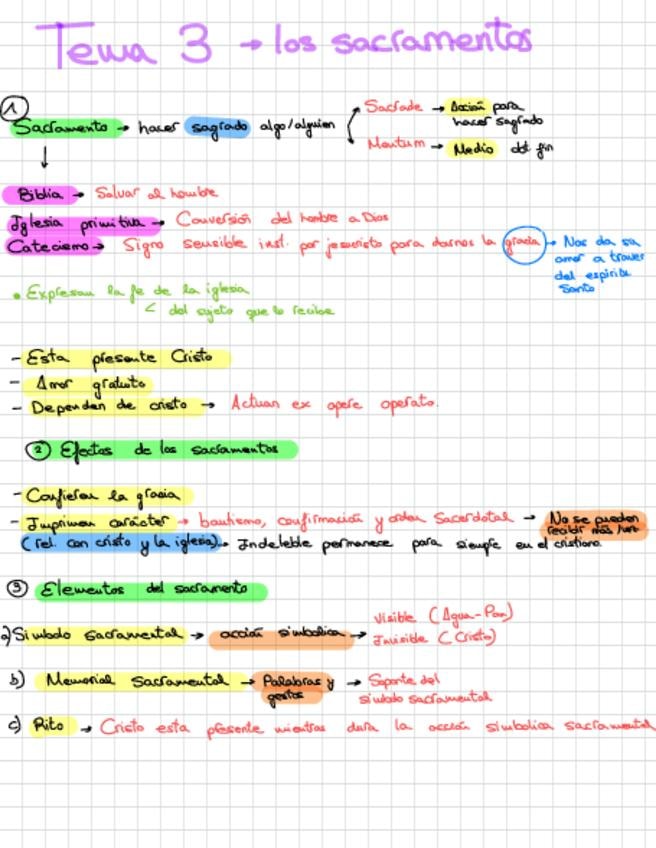 Tema 3 → los sacramentos
①
Sacramento → hacer sagrado algo/alguien
Sacrade → Acción para
hacer sagrado
Mentum → Medio del fin
↓
Biblia → Salvar al hombre
Iglesia primitiva → Conversión del hombre a Dios
Catecismo → Signo sensible inst. por jesucristo para darnos la gracia → Nos da su
amor a traver
del espiritu
Santo
• Expresan la fe de la iglesia
< del sujeto que lo recibe
- Esta presente Cristo
- Amor gratuito
- Dependen de cristo → Actuan ex opere operato.
② Efectos de los sacramentos
- Confieren la gracia
- Imprimen carácter → bautismo, confirmación y orden Sacerdotal → No se pueden
recibir más
(rel. con cristo y la iglesia) → Indeleble permanece para siempre en el cristiano
③ Elementos del sacramento
a) Simbolo sacramental → acción simbolica → Visible (Agua-Pan)
Invisible (Cristo)
b) Memorial Sacramental → Palabras y
gestos → Soporte del
simbolo sacramental
c) Rito → Cristo esta presente mientras dura la acción simbolica sacramental